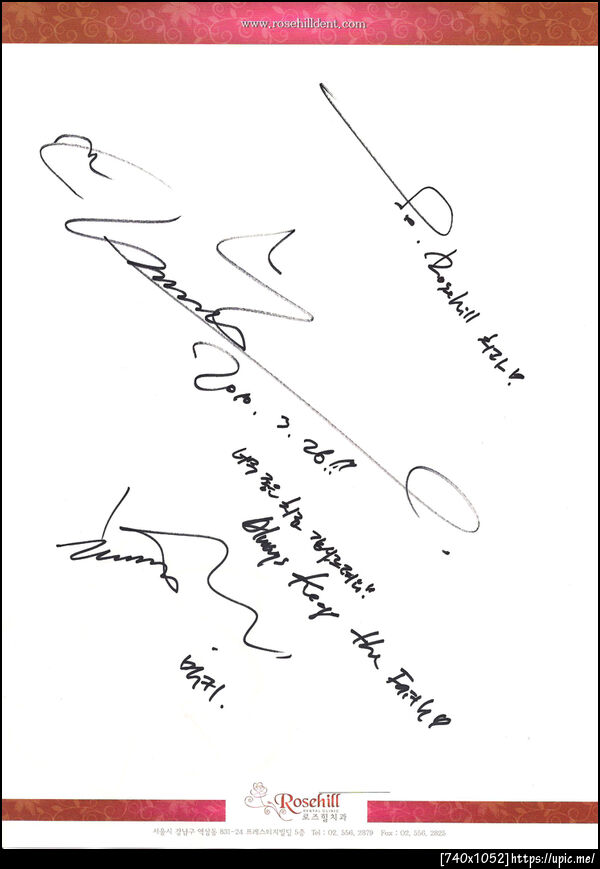 www.rosehilldent.com
To. Rosehill 치과♡.
2010. 7. 26!!
너무 좋은 치료 감사드려요!!
Always Keep the Faith♡
Rosehill
DENTAL CLINIC
로즈힐치과
서울시 강남구 역삼동 831-24 프레스티지빌딩 5층 Tel : 02. 556. 2879 Fax : 02. 556. 2825
[740x1052]https://upic.me/